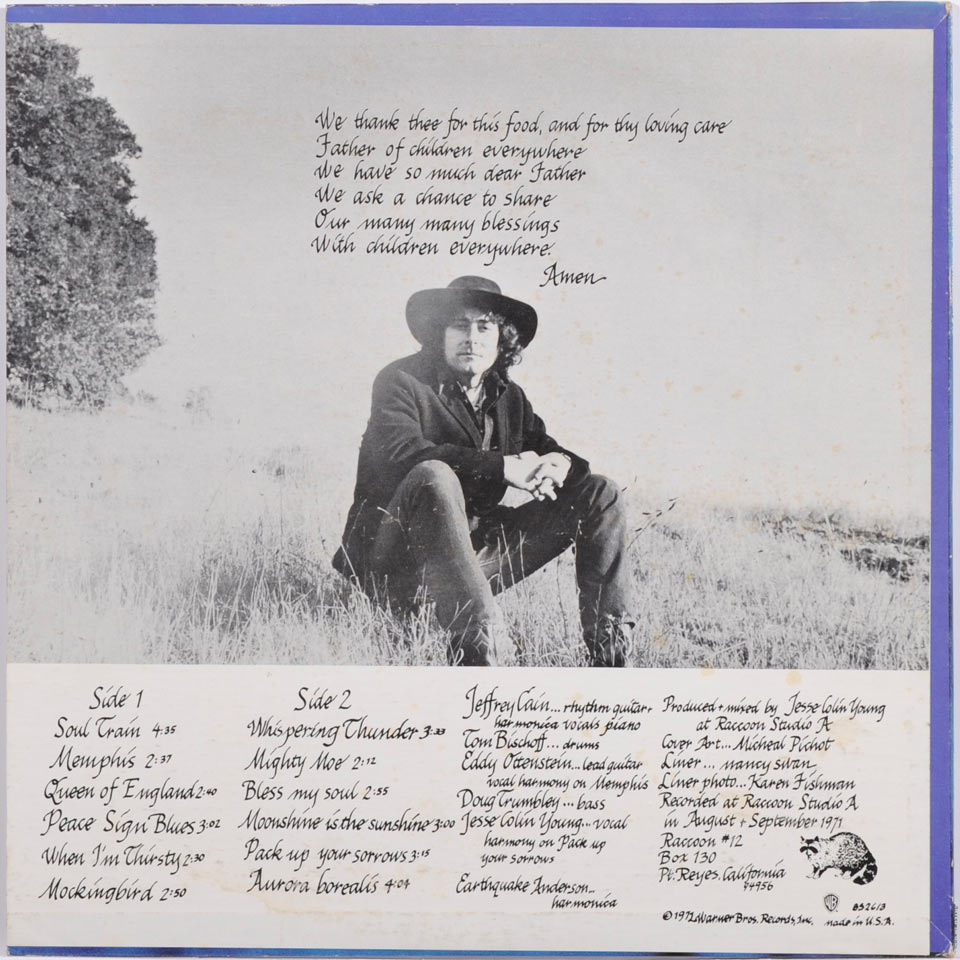 We thank thee for this food, and for thy loving care
Father of children everywhere
We have so much dear Father
We ask a chance to share
Our many many blessings
With children everywhere.
Amen
Side 1
Soul Train 4:35
Memphis 2:37
Queen of England 2:40
Peace Sign Blues 3:02
When I'm Thirsty 2:30
Mockingbird 2:50
Side 2
Whispering Thunder 3:33
Mighty Moe 2:12
Bless my soul 2:55
Moonshine is the sunshine 3:00
Pack up your sorrows 3:15
Aurora borealis 4:04
Jeffrey Cain... rhythm guitar +
harmonica vocals piano
Tom Bischoff... drums
Eddy Ottenstein... lead guitar
vocal harmony on Memphis
Doug Trumbley... bass
Jesse Colin Young... vocal
harmony on Pack up
your sorrows
Earthquake Anderson...
harmonica
Produced + mixed by Jesse Colin Young
at Raccoon Studio A
Cover Art... Micheal Pichot
Liner... nancy swan
Liner photo... Karen Fishman
Recorded at Raccoon Studio A
in August + September 1971
Raccoon #12
Box 130
Pt. Reyes, California
94956
WB
BS2613
© 1972 Warner Bros. Records, Inc. made in U.S.A.